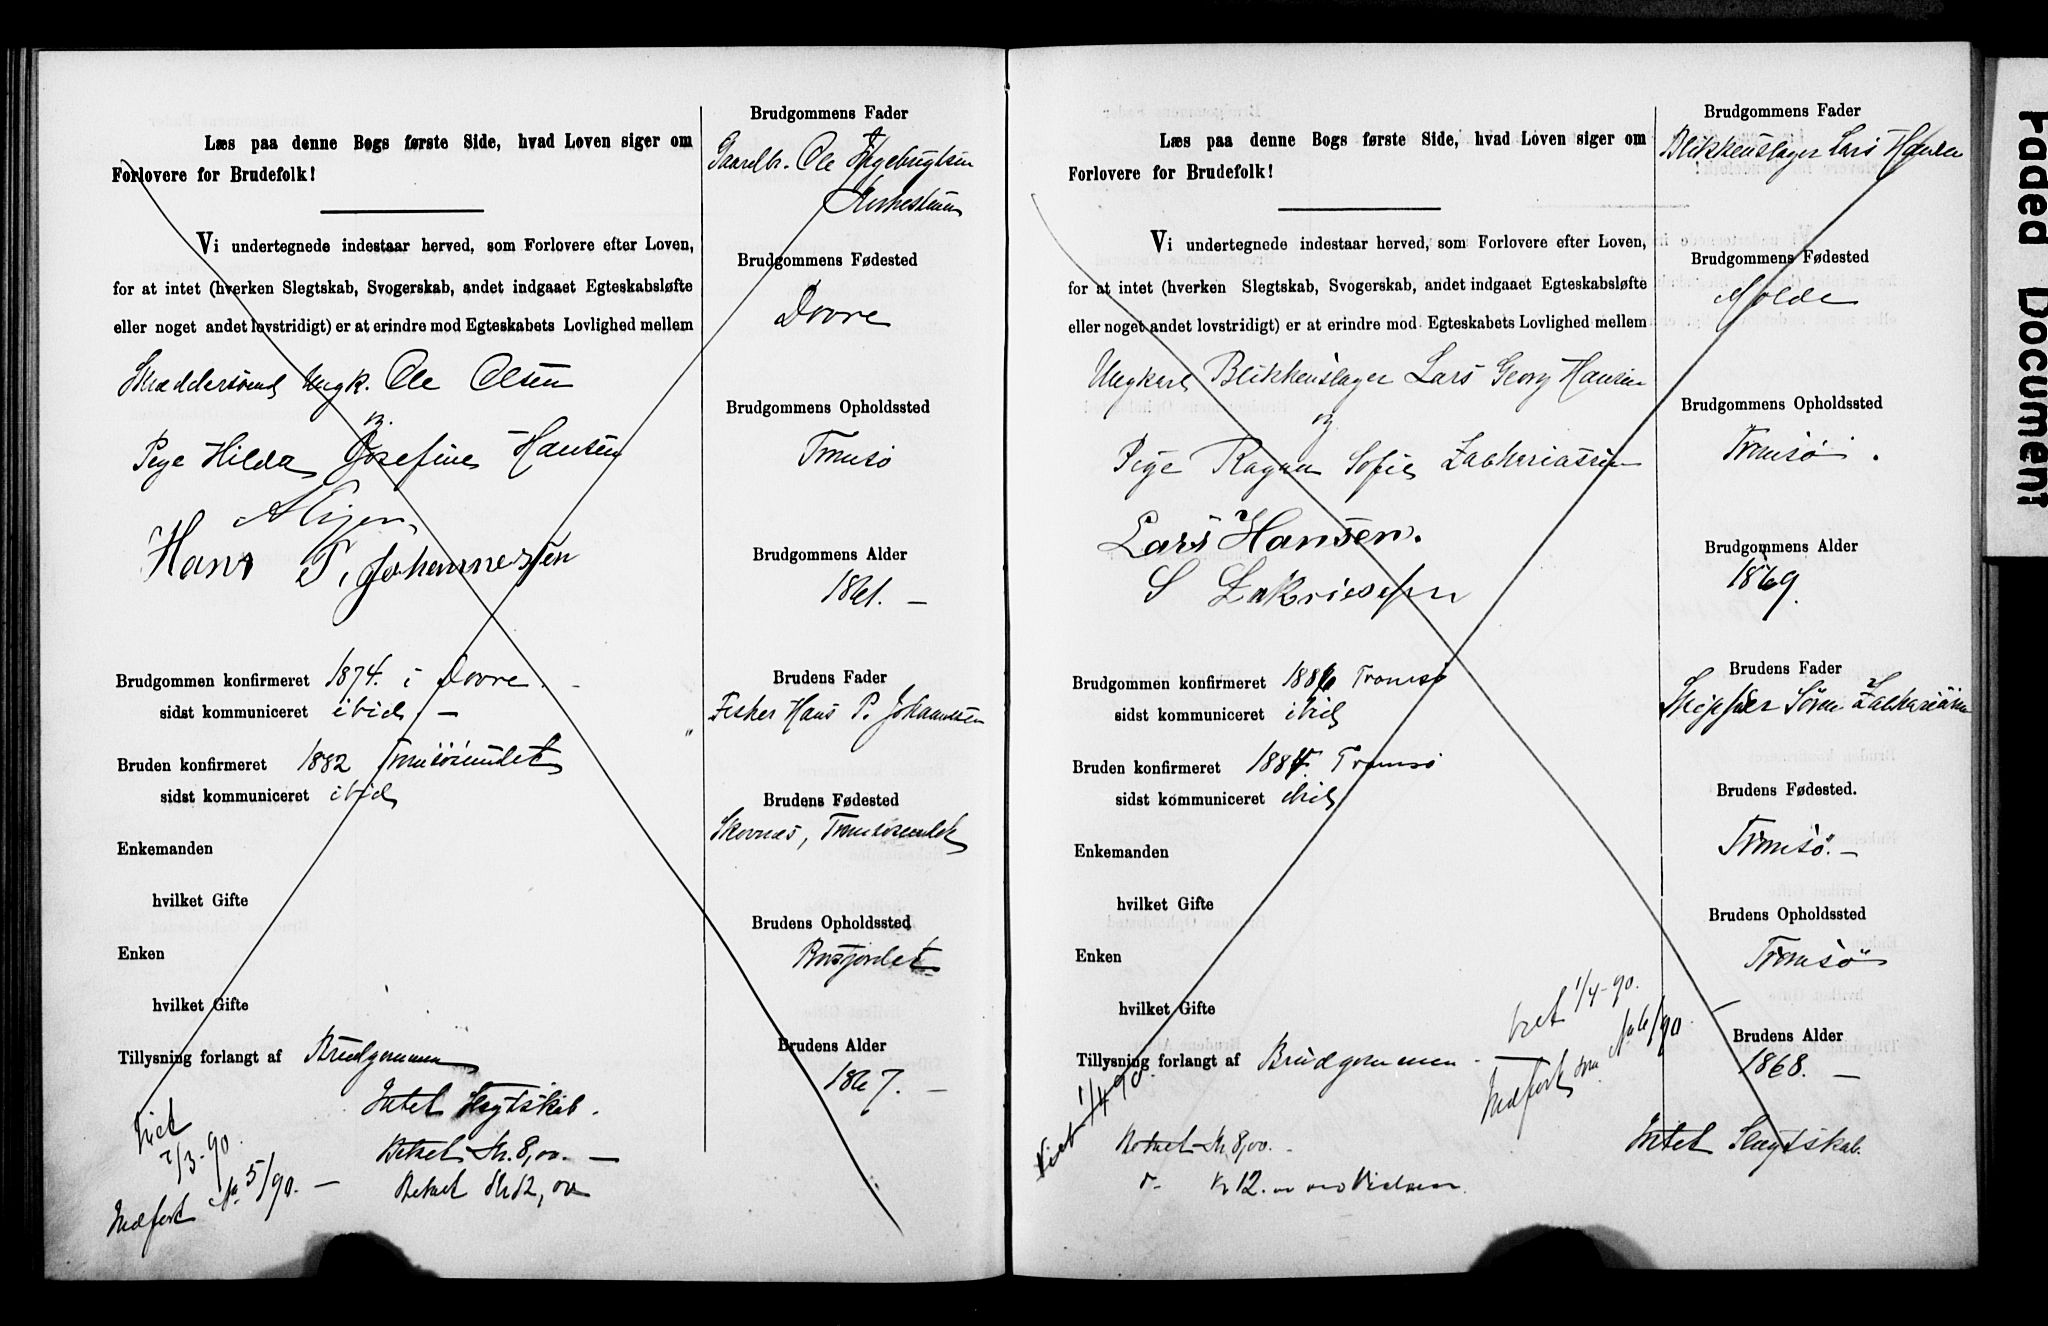 Læs paa denne Bogs første Side, hvad Loven siger om
Forlovere for Brudefolk!
Vi undertegnede indestaar herved, som Forlovere efter Loven,
for at intet (hverken Slegtskab, Svogerskab, andet indgaaet Egteskabsløfte
eller noget andet lovstridigt) er at erindre mod Egteskabets Lovlighed mellem
Skræddersvend Ungk. Ole Olsen
og
Pige Hilda Josefine Hansen
Hans P. Johannessen
Brudgommen konfirmeret 1874. i Dovre.
sidst kommuniceret ibid. —
Bruden konfirmeret 1882 Tromsøsundet
sidst kommuniceret ibid
Enkemanden
hvilket Gifte
Enken
hvilket Gifte
Tillysning forlangt af Brudgommen
Intet Slegtskab.
Betalt Kr. 8,00. —
Betalt Kr 12,00
Viet
2/3-90.
Indført No 5/90. —
Brudgommens Fader
Gaardbr. Ole
Brudgommens Fødested
Dovre
Brudgommens Opholdssted
Tromsø
Brudgommens Alder
1861. —
Brudens Fader
Fisker Hans P. Johannesen
Brudens Fødested
Skavnæs, Tromsøsundet
Brudens Opholdssted
Brudens Alder
1867. —
Læs paa denne Bogs første Side, hvad Loven siger om
Forlovere for Brudefolk!
Vi undertegnede indestaar herved, som Forlovere efter Loven,
for at intet (hverken Slegtskab, Svogerskab, andet indgaaet Egteskabsløfte
eller noget andet lovstridigt) er at erindre mod Egteskabets Lovlighed mellem
Ungkarl Blikkenslager Lars Georg Hansen
og
Pige Ragna Sofie Zachariassen
Lars Hansen.
S Zakriesen
Brudgommen konfirmeret 1886 Tromsø
sidst kommuniceret ibid
Bruden konfirmeret 1884. Tromsø
sidst kommuniceret ibid
Enkemanden
hvilket Gifte
Enken
hvilket Gifte
Tillysning forlangt af Brudgommen.
Viet 1/4 90.
Betalt Kr. 8,00. -
Kr 12.00 ved Vielsen.
Viet 1/4-90.
Indført No 6/90.
Brudgommens Fader
Blikkenslager Lars Hansen
Brudgommens Fødested
Molde
Brudgommens Opholdssted
Tromsø.
Brudgommens Alder
1869.
Brudens Fader
Skipper Søren Zachariasen
Brudens Fødested.
Tromsø. —
Brudens Opholdssted
Tromsø
Brudens Alder
1868. —
Intet Slegtskab.
Faded Document